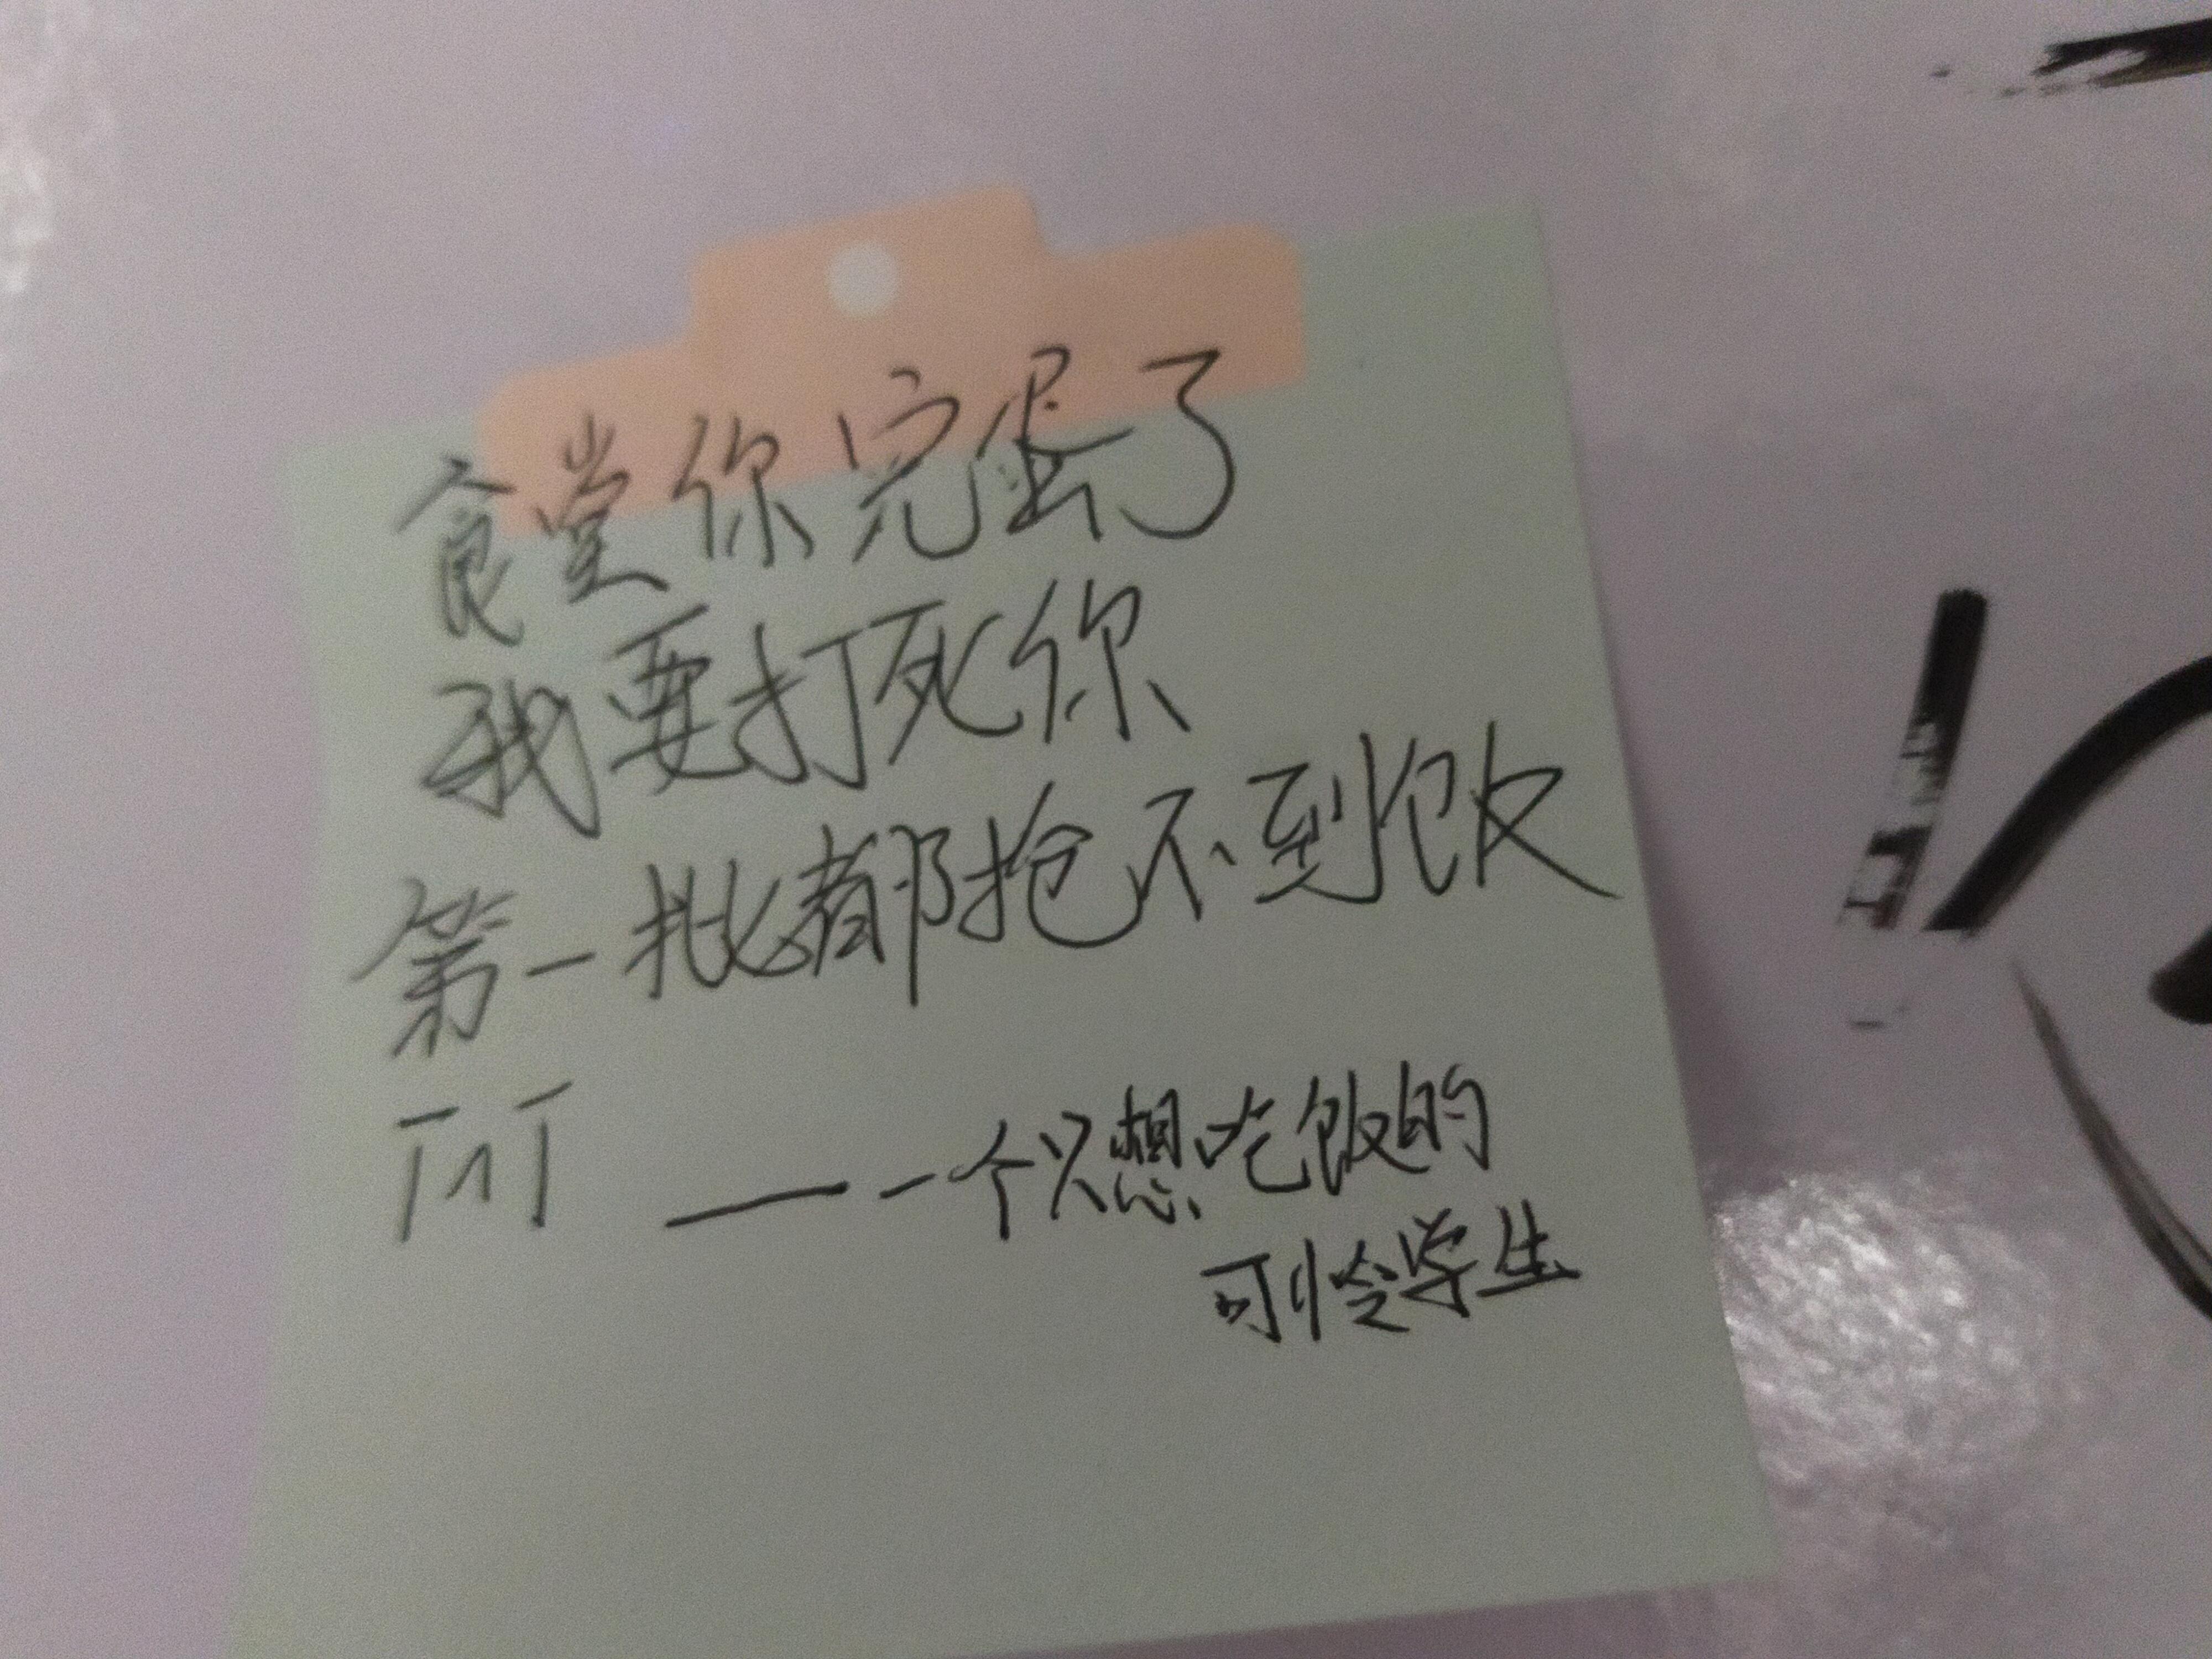 食堂你完蛋了
我要打死你
第一批都抢不到饭
T^T ——一个只想吃饭的
可怜学生